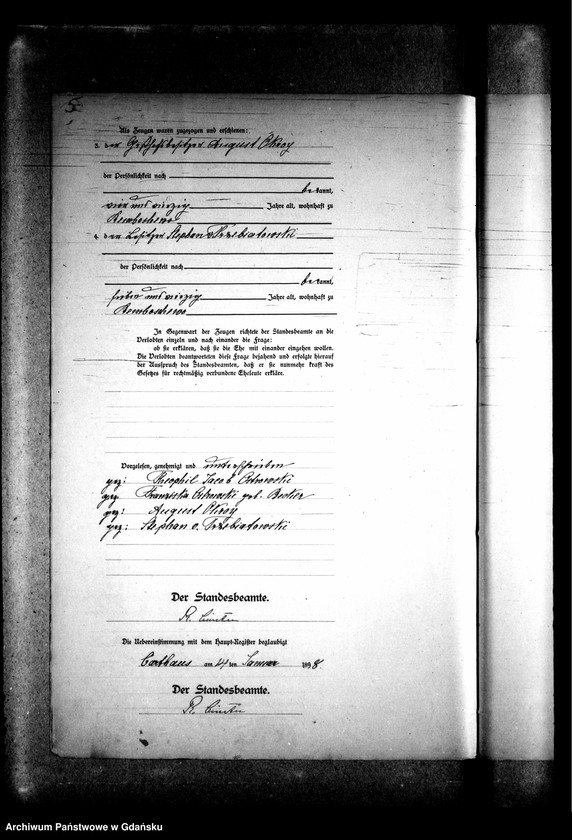 5.
Als Zeugen waren zugezogen und erschienen:
3. der Geschäftsbesitzer August Okroy
der Persönlichkeit nach
be kannt,
vier und vierzig Jahre alt, wohnhaft zu
Remboschewo
4. der Besitzer Stephan v Trzebiatowski
der Persönlichkeit nach
be kannt,
sieben und vierzig Jahre alt, wohnhaft zu
Remboschewo
In Gegenwart der Zeugen richtete der Standesbeamte an die
Verlobten einzeln und nach einander die Frage:
ob sie erklären, daß sie die Ehe mit einander eingehen wollen.
Die Verlobten beantworteten diese Frage bejahend und erfolgte hierauf
der Ausspruch des Standesbeamten, daß er sie nunmehr kraft des
Gesetzes für rechtmäßig verbundene Eheleute erkläre.
Vorgelesen, genehmigt und unterschrieben
gez: Theophil Jacob Ostrowski
gez. Franziska Ostrowski geb. Becker
gez: August Okroy
gez: Stephan v. Trzebiatowski
Der Standesbeamte.
R.
Die Uebereinstimmung mit dem Haupt-Register beglaubigt
Carthaus am 4 ten Januar 1898.
Der Standesbeamte.
R.
Archiwum Państwowe w Gdańsku